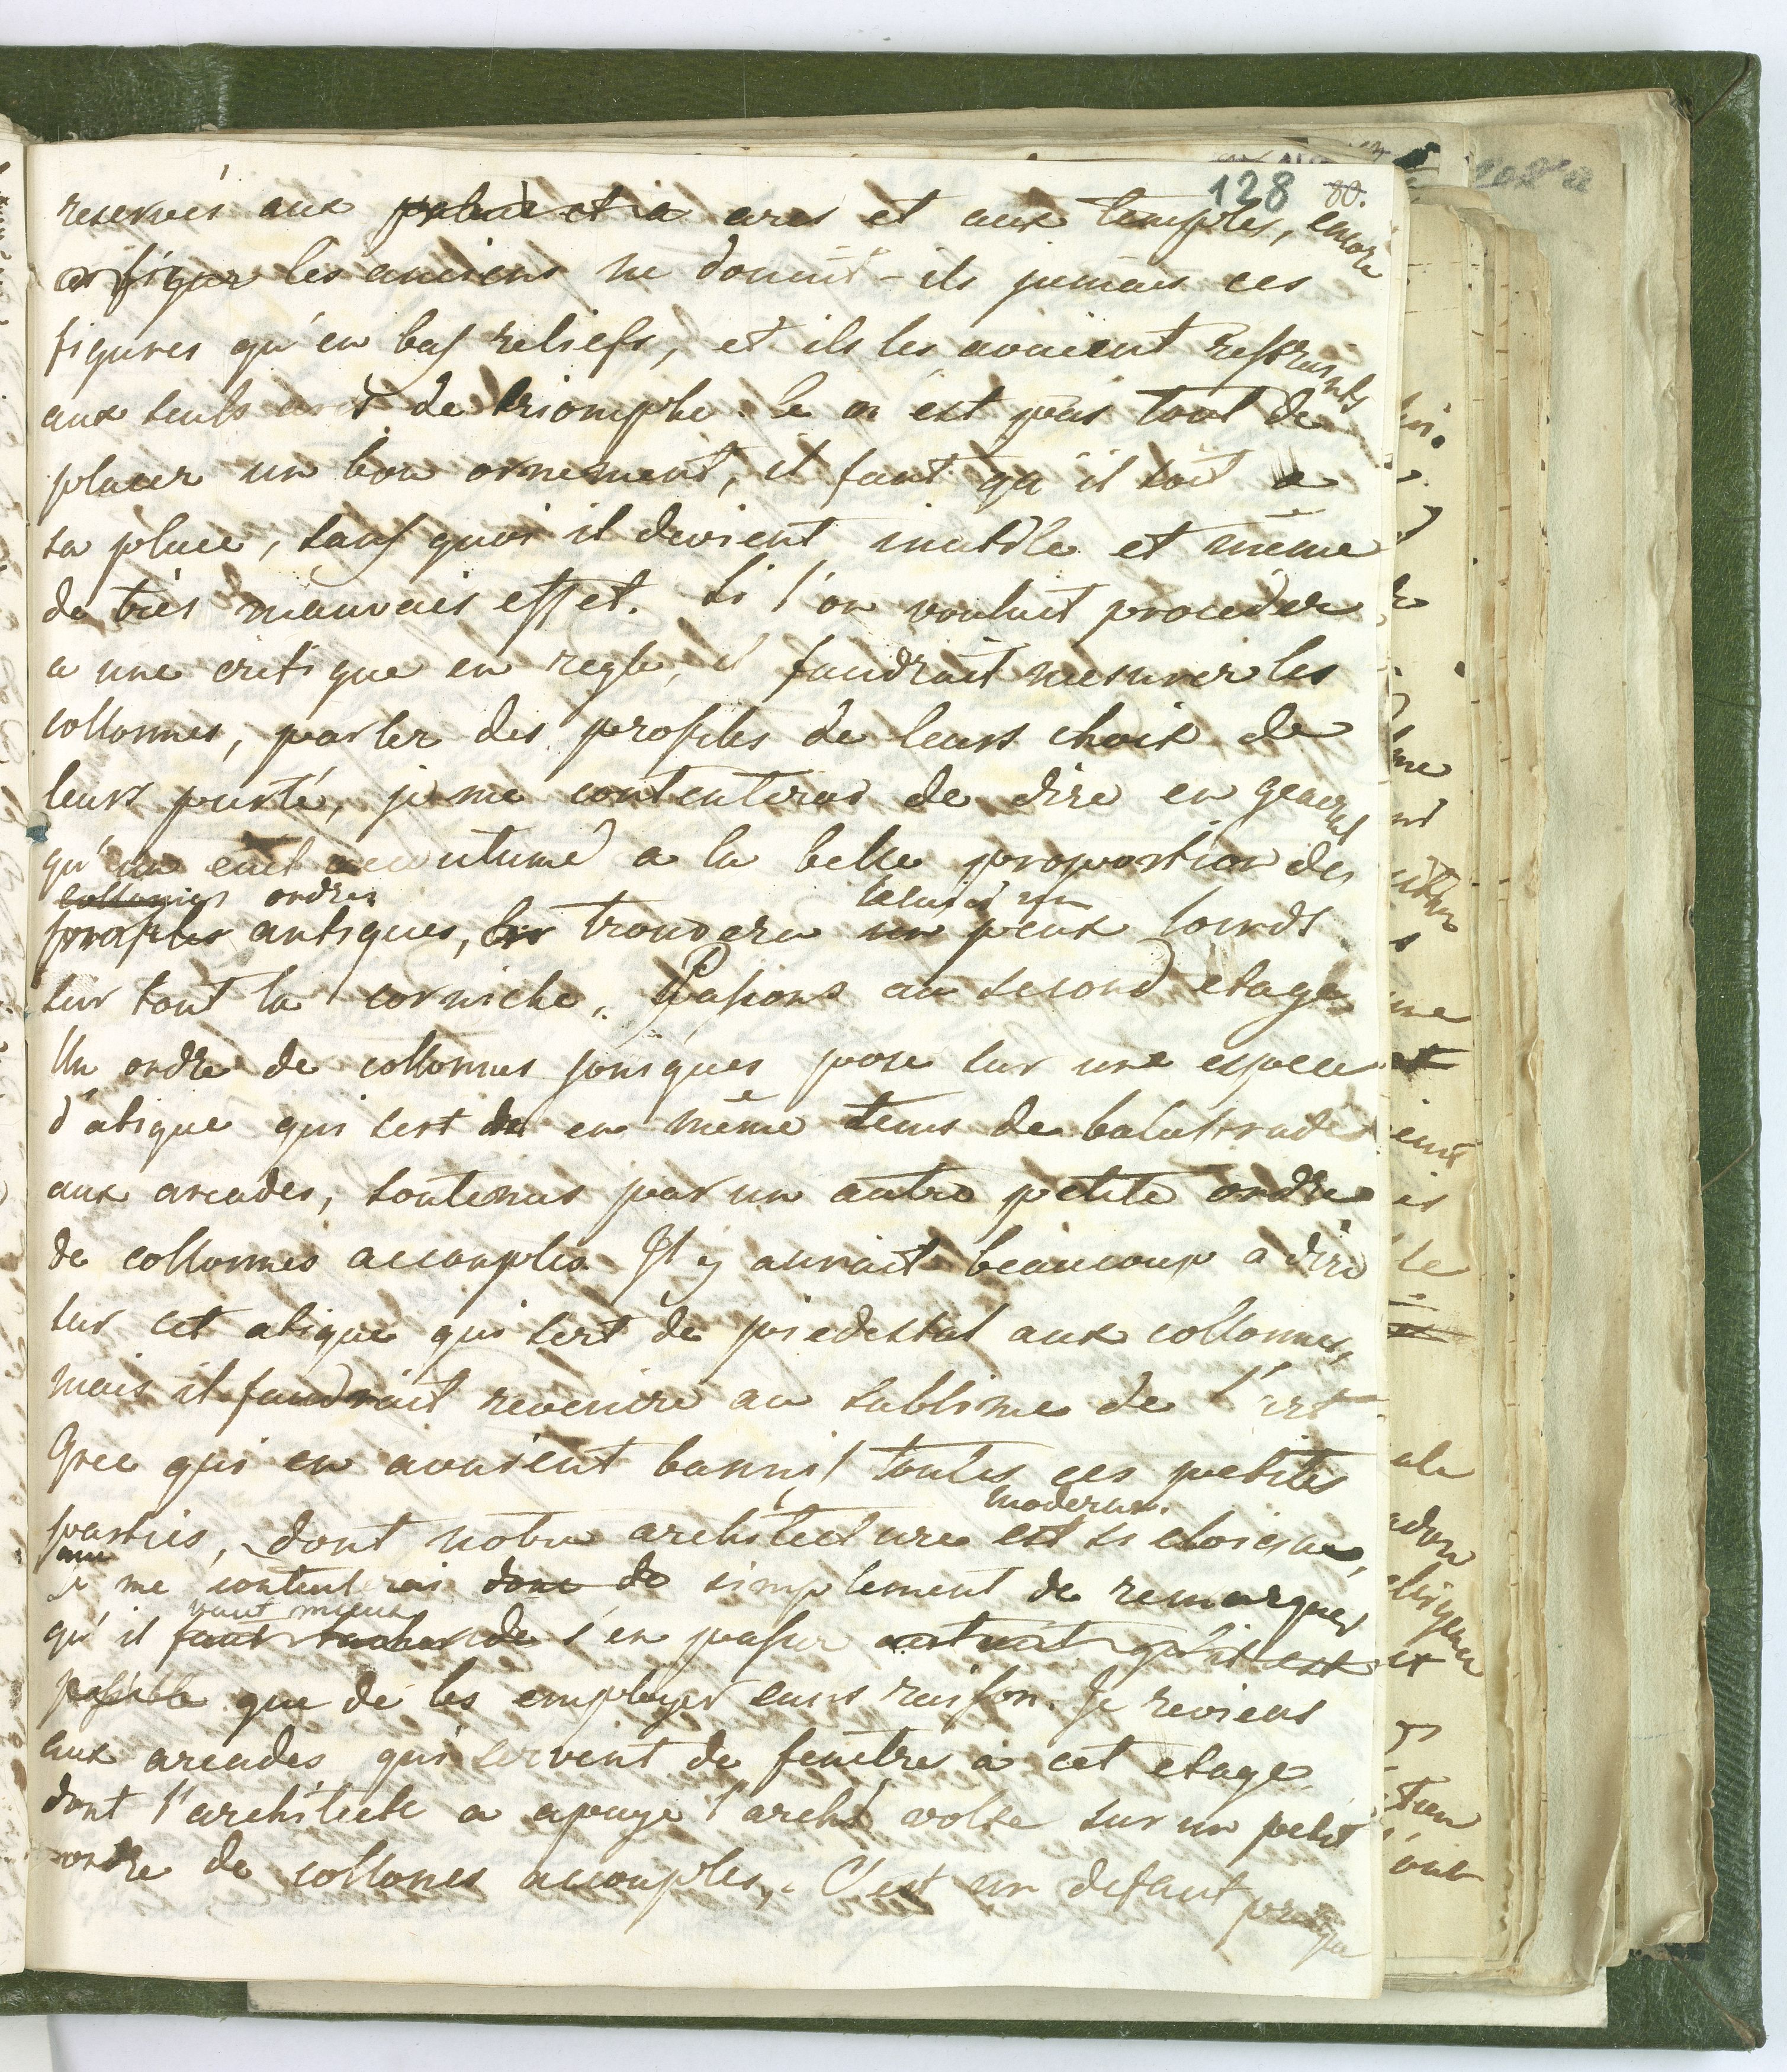 128 80.
reservés aux palais et a arcs et aux temples, encore
les anciens ne donnit-ils jamais ces
figures qu'en bas reliefs, et ils les avaient restraints
aux seuls arcs de triomphe. Ce n'est pas tout de
placer un bon ornement, il faut qu'il soit a
sa place, sans quoi il devient inutile et même
de très mauvais effet. Si l'on voulait proceder
a une critique en regle, il faudrait mesurer les
collonnes, parler des profiles de leurs choix de
leurs pureté, je me contenterai de dire en general
qu'un oeil accoutumé a la belle proportion des
collonnes ordres
profiles antiques, les trouvera un peux lourds
celuici un
sur tout la corniche. Passons au second etage
Un ordre de collonnes joniques pose sur une espece
d'atique qui sert de en même tems de balustrade
aux arcades, soutenus par un autre petite ordre
de collonnes accouples. Il y aurait beaucoup a dire
sur cet atique qui sert de piedestal aux collonnes,
mais il faudrait revenire au sublime de l'art
Grec qui en avaient bannis toutes ces petites
moderne.
parties, dont notre architecture est si eloigne,
je me contenterai donc de simplement de remarquer
vaut mieux
qu'il faut tacher de s'en passer autant qu'il est
possible que de les employer sans raison. Je reviens
aux arcades qui servent de fenetre à cet etage
dont l'architecte a apuye l'archivolte sur un petit
ordre de collones accouples,. C'est un defaut presque